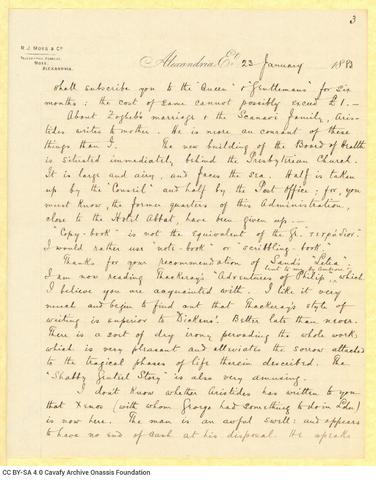 3
R. J. MOSS & Co.
TELEGRAPHIC ADDRESS,
MOSS,
ALEXANDRIA.
Alexandria, Et. 23 January 1883
Shall subscribe you to the "Queen" & "Gentleman's" for six
months; the cost of same cannot possibly exceed £1.—
About Zogheb's marriage & the Scanavi family, Aris-
tides writes to mother. He is more au courant of these
things than I. The new building of the Board of Health
is situated immediately behind the Presbyterian Church.
It is large and airy, and faces the sea. Half is taken
up by the "Council" and half by the Post Office; for, you
must know, the former quarters of this Administration,
close to the Hotel Abbat, have been given up.—
"Copy-book" is not the equivalent of the Gr. τετράδιον.
I would rather use "note-book" or "scribbling-book."
Thanks for your recommendation of Sand's "Lelia".
I am now reading Thackeray's "Adventures of Philip" which
I believe you are acquainted with. I like it very
much and begin to find out that Thackeray's style of
writing is superior to Dickens'. Better late than never.
There is a sort of dry irony pervading the whole work,
which is very pleasant and alleviates the sorrow attached
to the tragical phases of life therein described. The
"Shabby Genteel Story" is also very amusing.
I don't know whether Aristides has written to you
that Xenos (with whom George had something to do in Ldn)
is now here. The man is an awful swell: and appears
to have no end of cash at his disposal. He speaks
CC BY-SA 4.0 Cavafy Archive Onassis Foundation